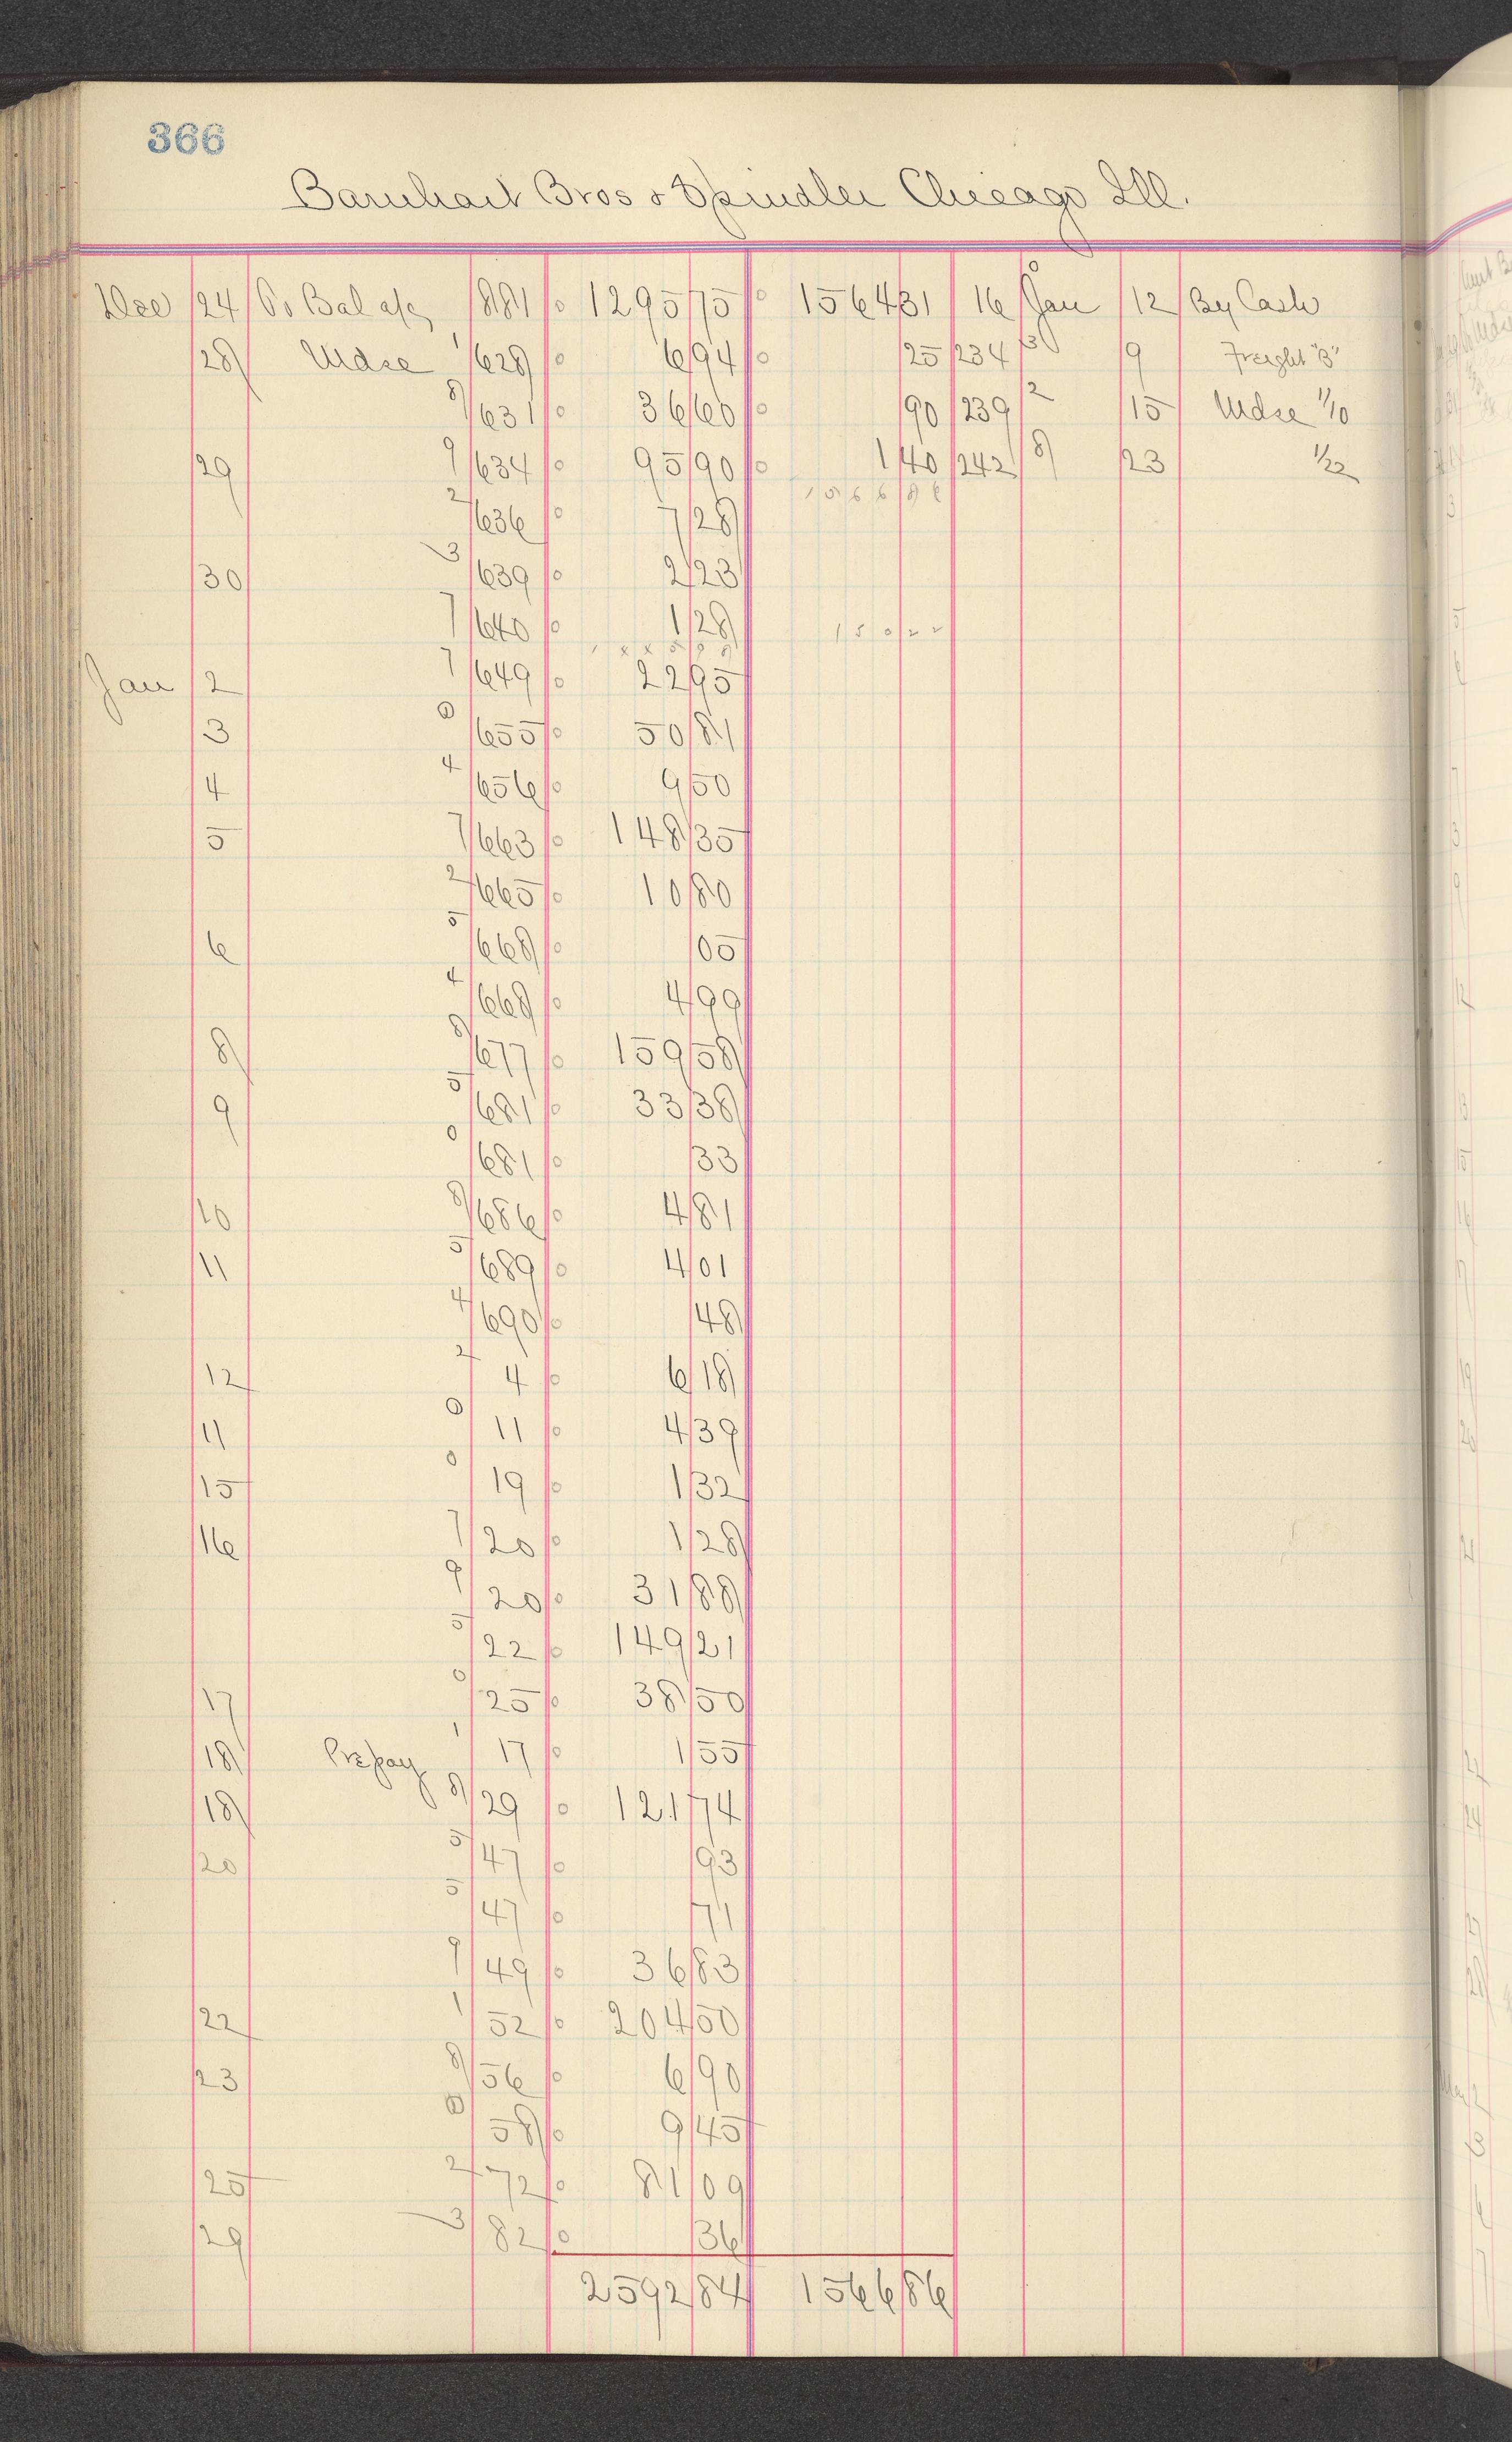 366
Barnhart Bros & Spindler Chicago Ill.
Dec 24 To Bal a/c 881 1295 75 1564 31 16 0 Jan 12 By Cash
28 Mdse 1 628 6 94 25 234 3 9 Freight "B"
8 631 36 60 90 239 2 15 Mdse 1/10
29 9 634 95 90 1 40 242 8 23 1/22
2 636 7 28 1566 86
30 3 639 2 23
7 640 1 28 150 22
Jan 2 7 649 22 95
3 0 655 50 81
4 4 656 9 50
5 7 663 148 35
2 665 10 80
6 5 668 05
4 668 4 99
8 8 677 159 58
9 5 681 33 38
0 681 33
10 8 686 4 81
11 5 689 4 01
4 690 48
12 2 4 6 18
11 0 11 4 39
15 0 19 1 32
16 7 20 1 28
9 20 31 88
5 22 149 21
17 0 25 38 50
18 Prepay 1 17 1 55
18 8 29 121 74
20 5 47 93
5 47 71
9 49 36 83
22 1 52 204 50
23 8 56 6 90
0 58 9 45
25 2 72 81 09
29 3 82 36
2592 84 1566 86